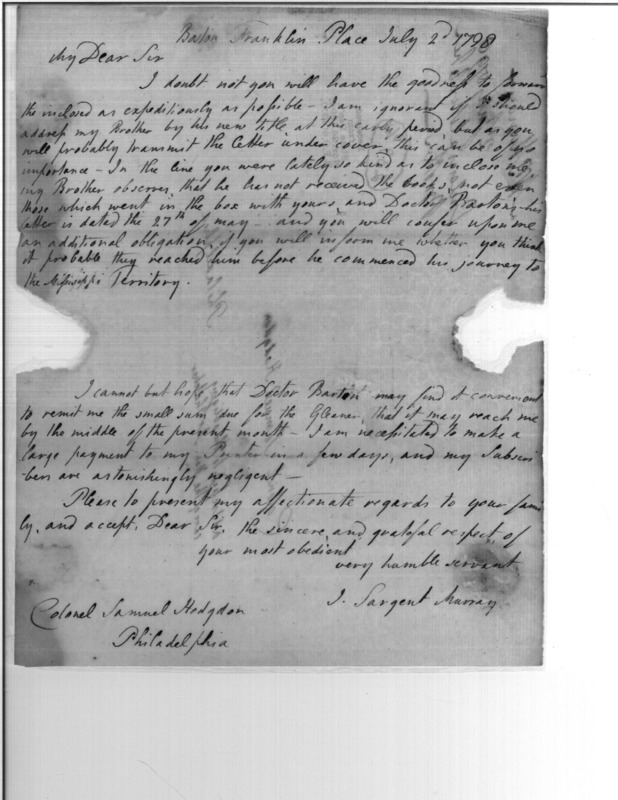 Boston Franklin Place July 2d 1798
My Dear Sir
I doubt not you will have the goodness to forward
the inclosed as expeditiously as possible – I am ignorant if I should
address my Brother by his new title at this early period, but as you
will probably transmit the letter under cover, this can be of no
importance – In the line you were lately so kind as to inclose me,
my Brother observes, that he has not received the books, not even
those which went in the box with yours and Doctor Barton's – his
letter is dated the 27th of may – and you will confer upon me
an additional obligation, if you will inform me whether you think
it probable they reached him before he commenced his journey to
the Mississippi Territory.
I cannot but hope, that Doctor Barton may find it convenient
to remit me the small sum due for the Gleaner, that it may reach me
by the middle of the present month – I am necessitated to make a
large payment to my Printer in a few days, and my Subscri-
bers are astonishingly negligent –
Please to present my affectionate regards to your fami
ly, and accept, Dear Sir, the sincere, and grateful respect, of
your most obedient
very humble servant
J. Sargent Murray
Colonel Samuel Hodgdon
Philadelphia